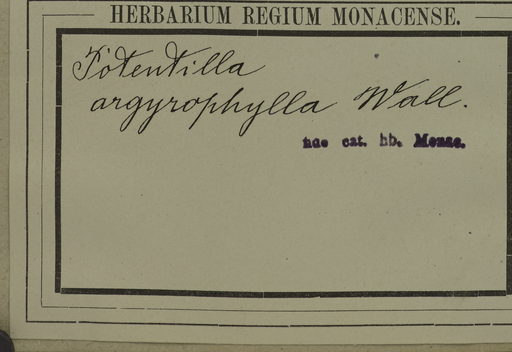 HERBARIUM REGIUM MONACENSE.
Potentilla
argyrophylla Wall.
hdo cat. hb. Monac.